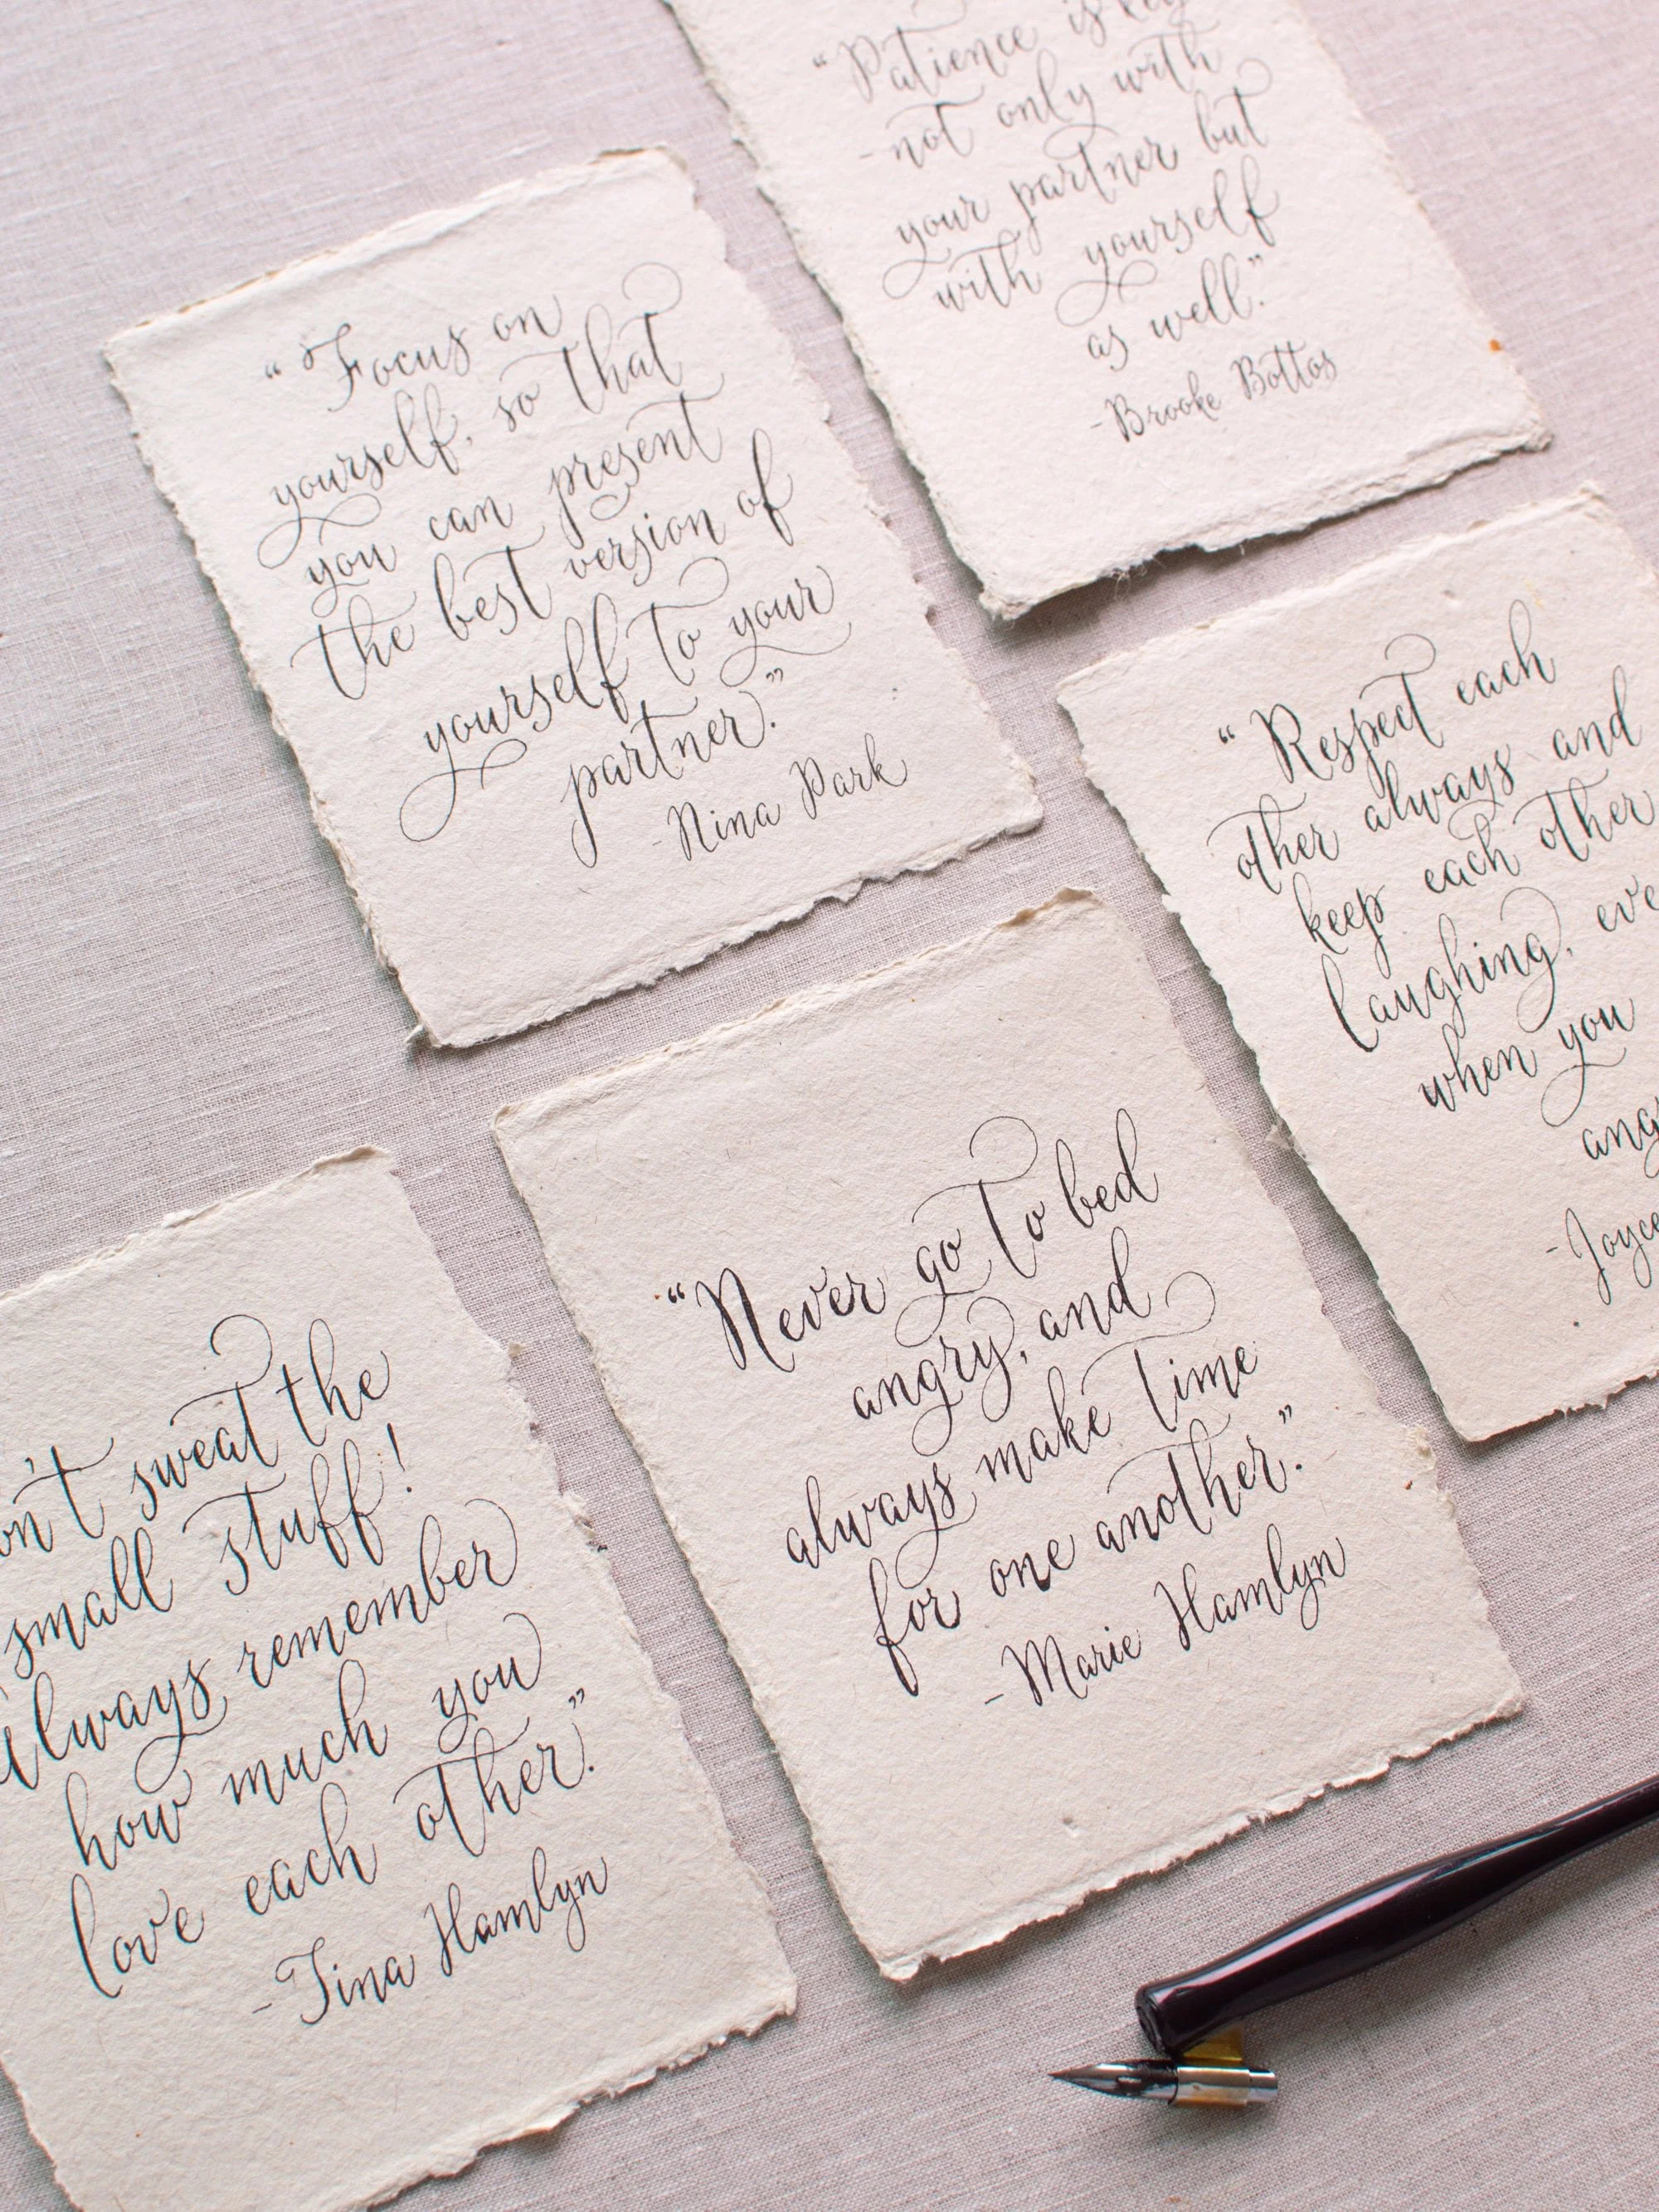 "Patience is key
- not only with
your partner but
with yourself
as well."
-Brooke Bottos
"Focus on
yourself, so that
you can present
the best version of
yourself to your
partner."
-Nina Park
"Respect each
other always and
keep each other
laughing,
when you
-Joyce
"Never go to bed
angry, and
always make time
for one another."
-Marie Hamlyn
sweat the
small stuff!
always remember
how much you
love each other."
-Tina Hamlyn